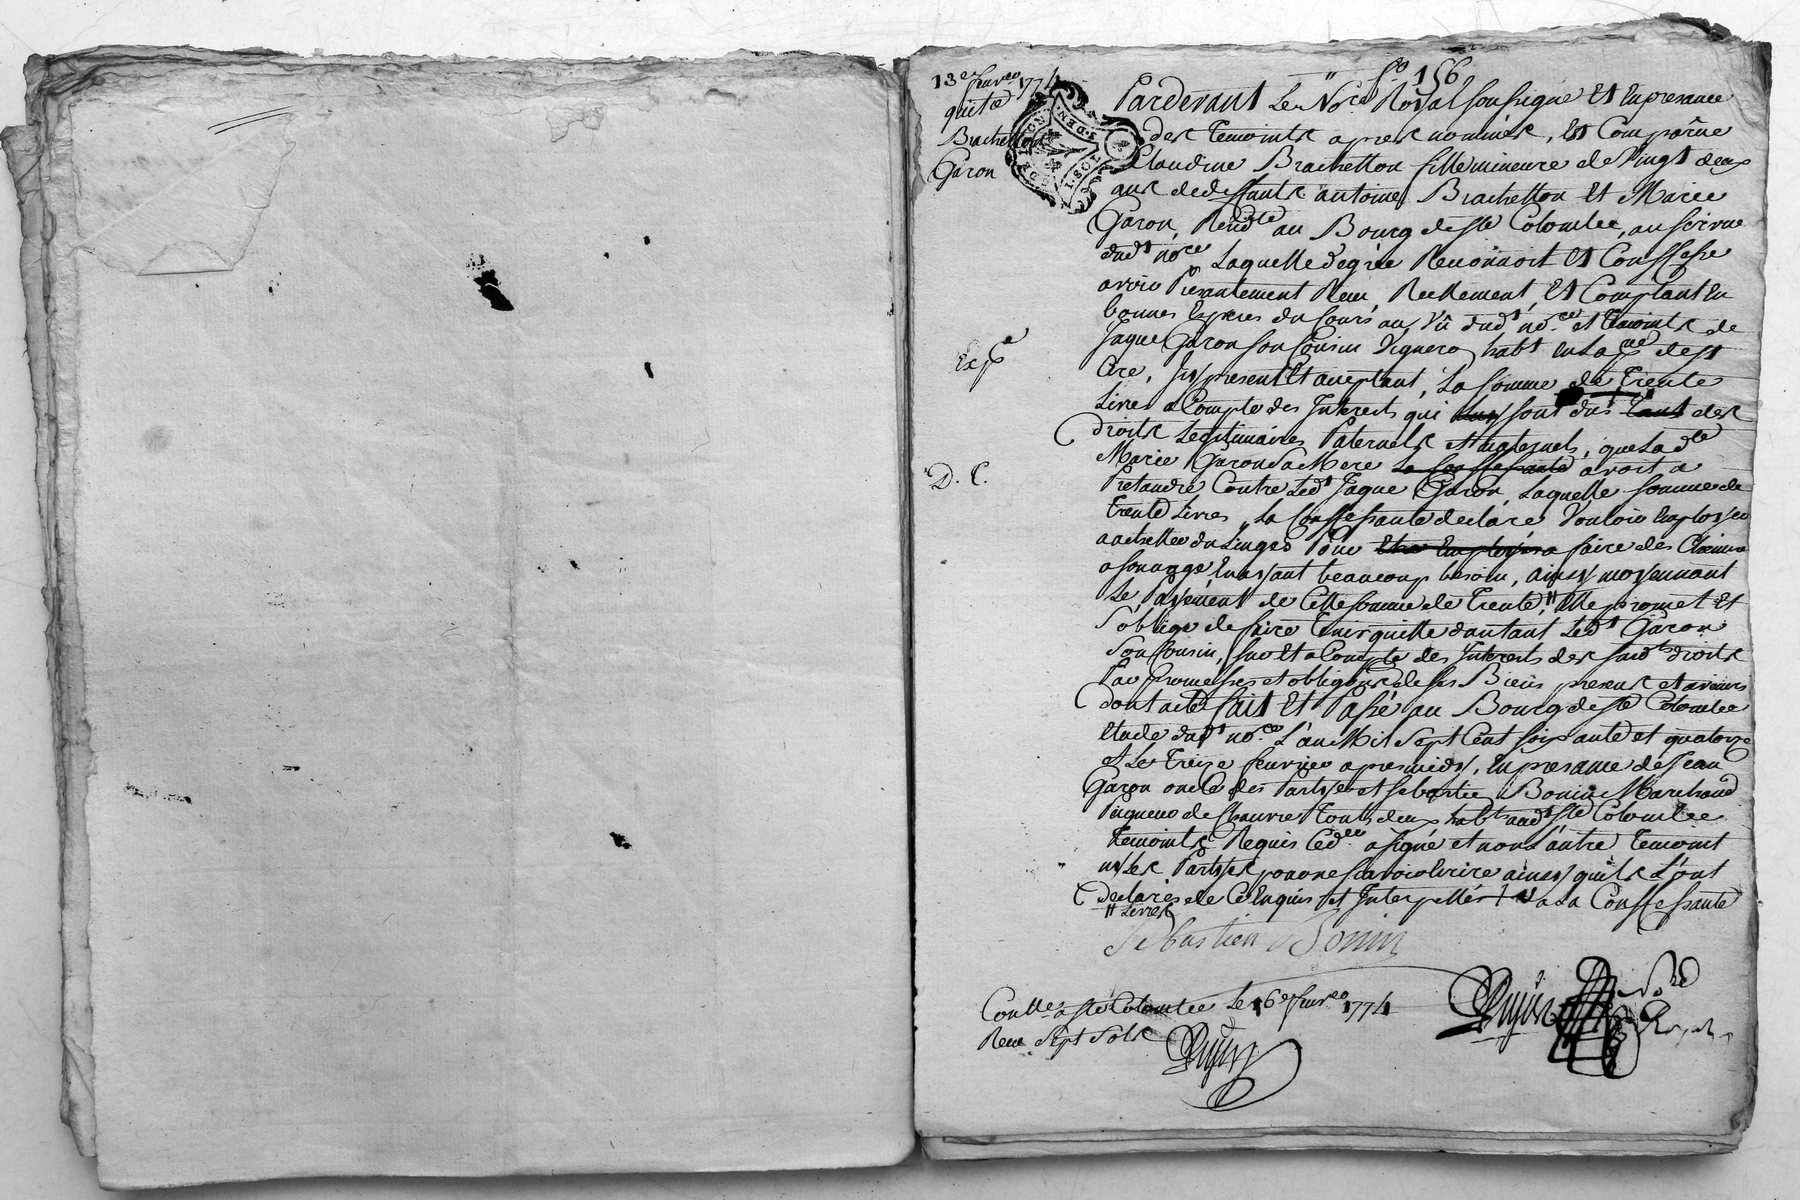 fo 156
13e fevreo 1774
quitce
Brachetton
Garon
Pardevant Le Nore Royal soussigne Et En presance
des temoints apres nommés, Est Comparüe
Claudine Brachetton fille mineure de Vingt deux
ans de deffunts antoine Brachetton Et Marie
Garon, Residte au Bourg de ste Colombe, au service
dudt nore Laquelle de gré Reconnoit Et Confesse
avoir Presantement Receu, Reellement, Et Comptant En
bonnes Especes du Cours au Vû dudt nore et temoints de
Jaque Garon son Cousin Vigneron habt En La psse de st
Cire, Icy present Et aceptant, La somme de trente
Livres a Compte des Interests qui sont dus des
droits Legitimaires Paternels et Maternels, que La dte
Marie Garon sa Mere avoit a
Pretandre Contre Ledt Jaque Garon, Laquelle somme de
trente Livres, La Confessante declare Vouloir Employer
a achetter du Linges Pour faire des Chemises
a son usage En ayant beaucoup besoin, ainsy moyennant
Le payement de Cette somme de trente # Elle promet Et
s'oblige de faire tenir quitte d'autant Ledt Garon
son Cousin, sur Et a Compte des Interests des susdts droits
Par Promesses et obligons de ses Biens presens et avenirs
dont acte fait Et Passé au Bourg de ste Colombe
Etude dudt nore L'an Mil Sept Cent soixante et quatorze
et Le treize fevrier apres midy, En presance de Jean
Garon oncle des Parties et sebastien Bonin Marchand
Pigneur de Chanvre tous deux habt audt ste Colombe
temoints Requis Cedr a signé et non L'autre temoint
ny Les Parties pour ne scavoir Ecrire ainsy qu'ils L'ont
declarés de Ce Enquis et Interpellés a La Confessante
# Livres
Expé
D. C.
Sebastien Bonin
Contlé a ste Colombe Le 16e fevreo 1774
Receu sept sols